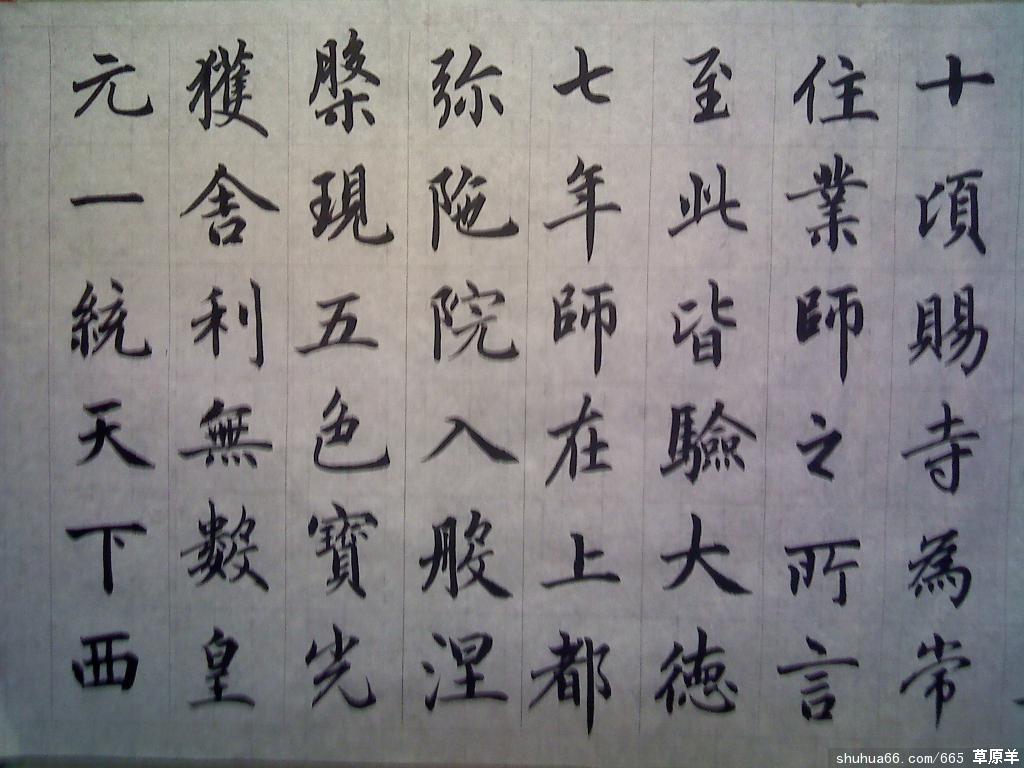 十頃賜寺為常
住業師之所言
至此皆驗大德
七年師在上都
弥陁院入般涅
槃現五色寶光
獲舍利無數皇
元一統天下西
shuhua66.com/665 草原羊